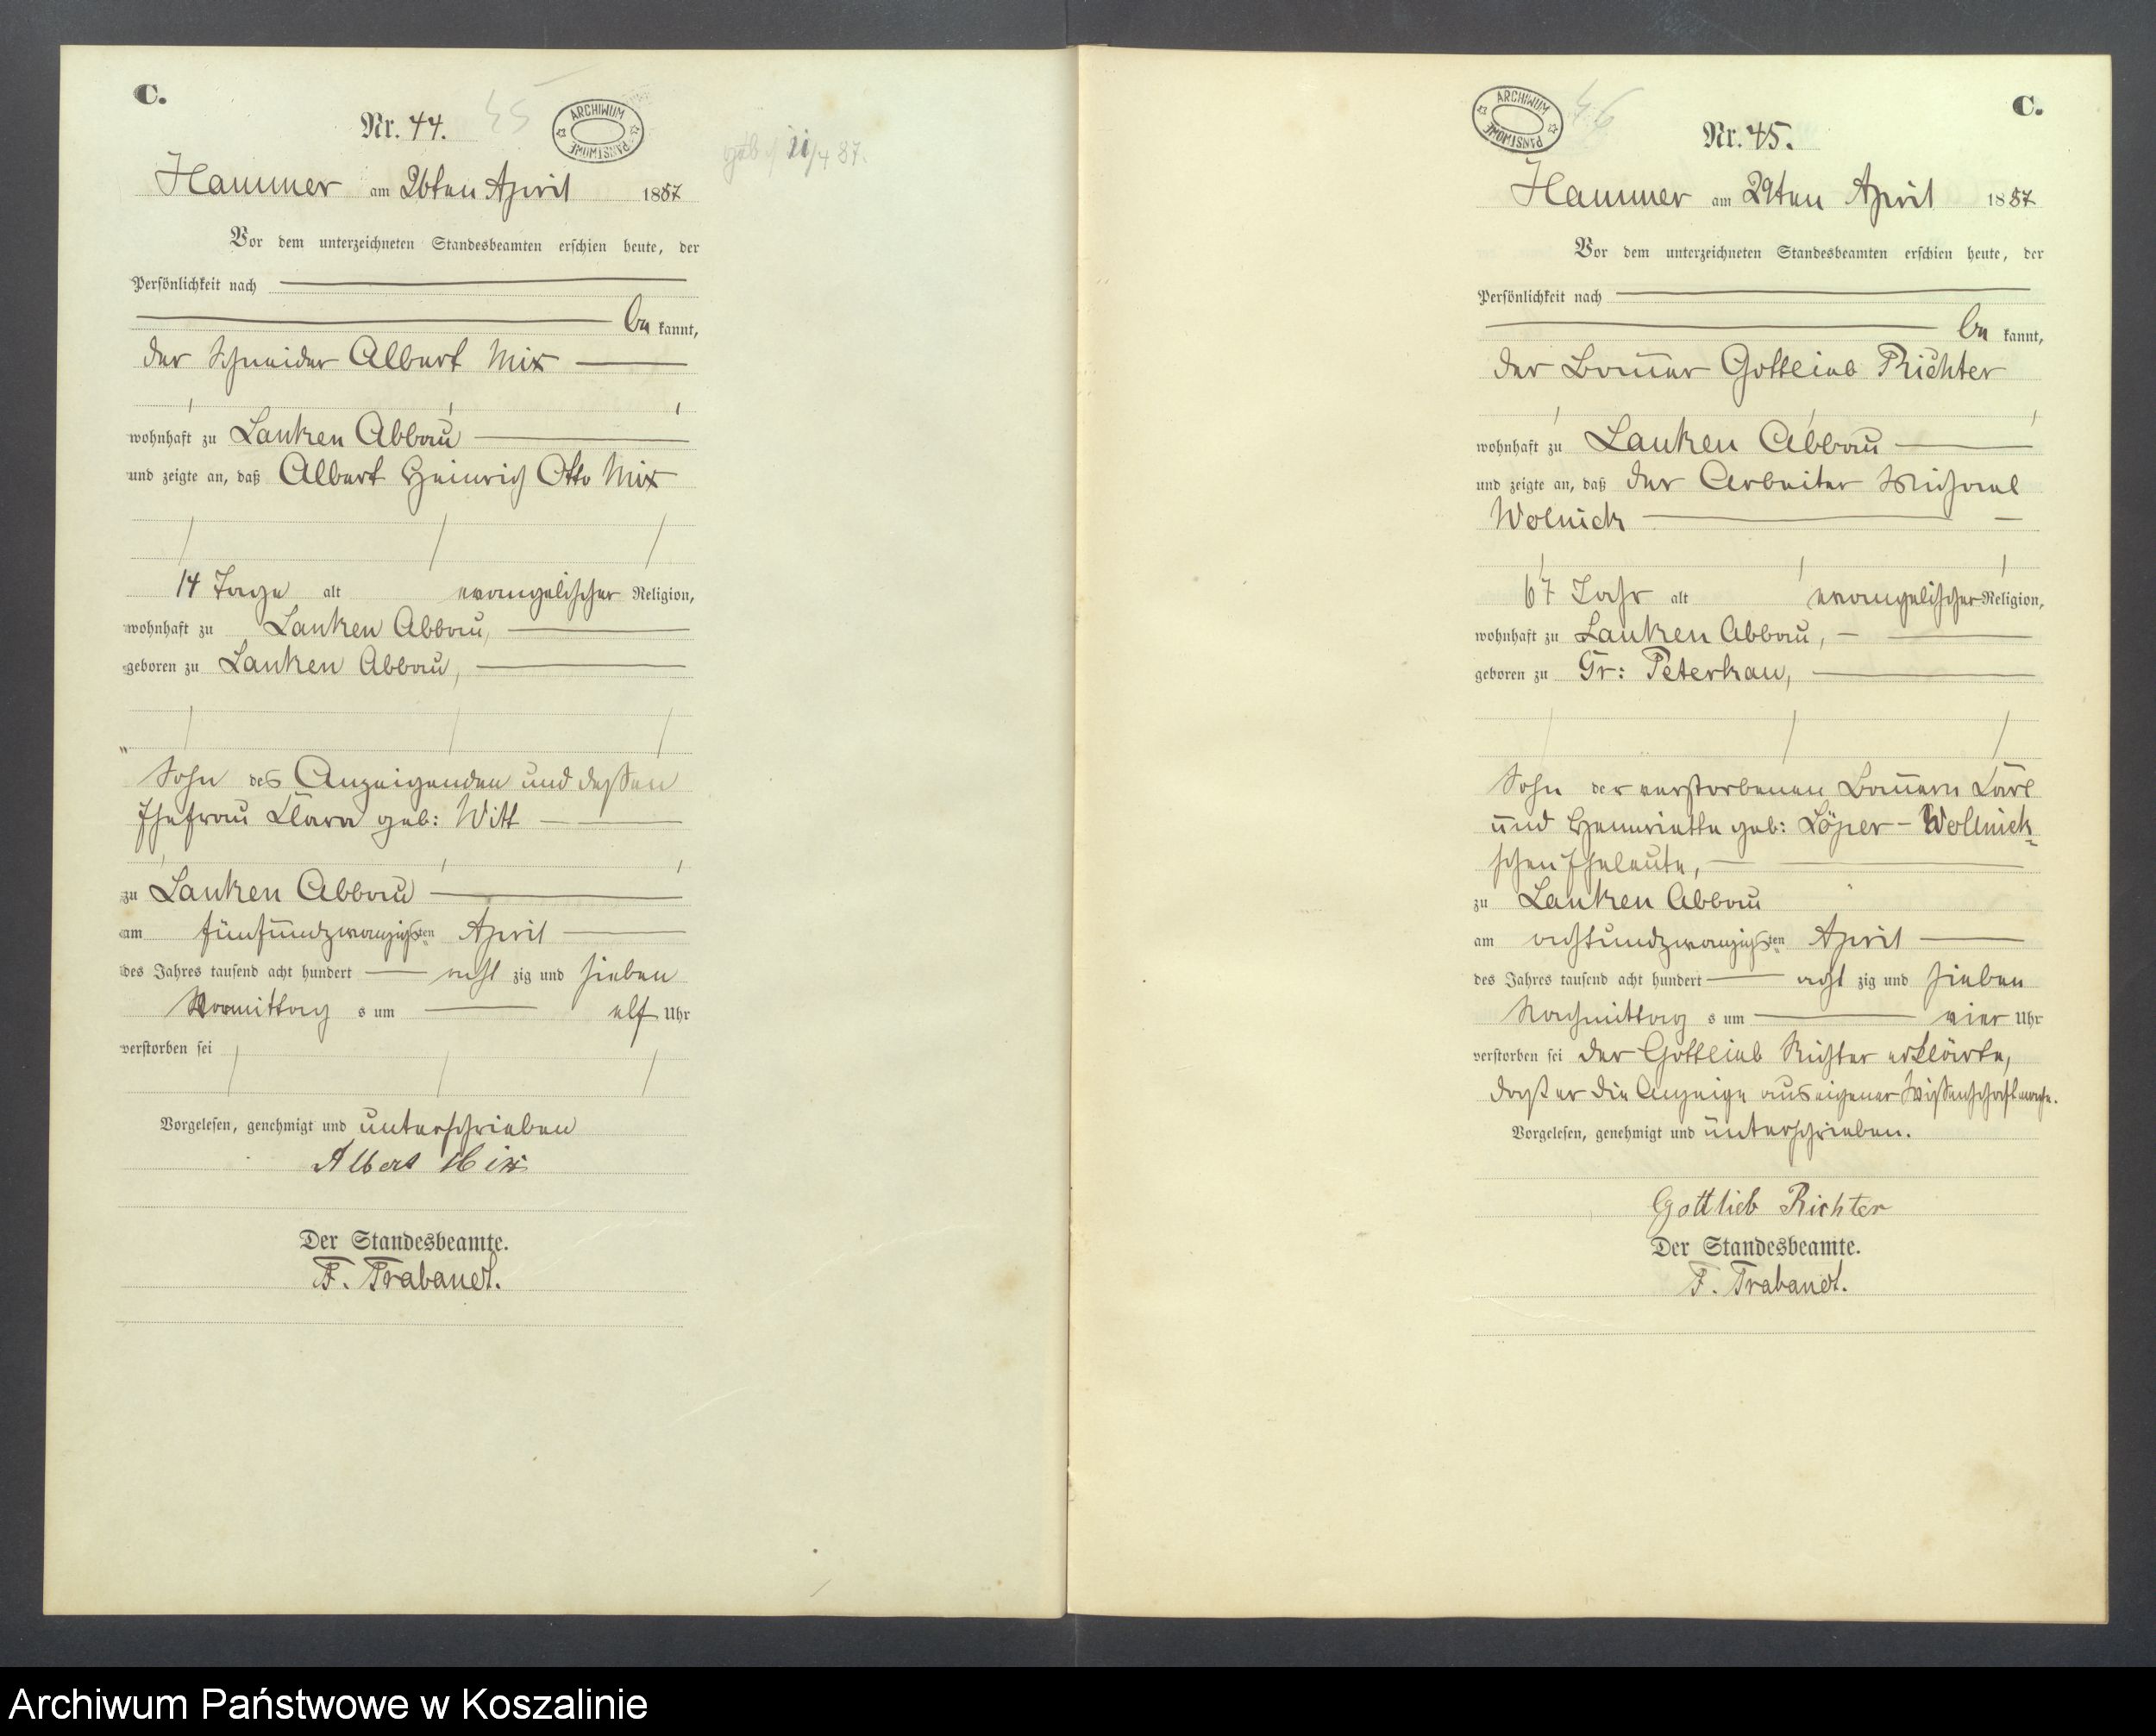 C.
Nr. 44.
45
ARCHIWUM PAŃSTWOWE
geb. 11/4 87.
Hammer am 26ten April 1887
Vor dem unterzeichneten Standesbeamten erschien heute, der
Persönlichkeit nach
be kannt,
der Schneider Albert Mix
wohnhaft zu Lanken Abbau
und zeigte an, daß Albert Heinrich Otto Mix
14 Tage alt evangelischer Religion,
wohnhaft zu Lanken Abbau,
geboren zu Lanken Abbau,
Sohn des Anzeigenden und dessen
Ehefrau Clara geb: Witt
zu Lanken Abbau
am fünfundzwanzigsten April
des Jahres tausend acht hundert acht zig und sieben
Vormittag s um elf Uhr
verstorben sei
Vorgelesen, genehmigt und unterschrieben
Albert Mix
Der Standesbeamte.
F. Trabandt.
ARCHIWUM PAŃSTWOWE
46
C.
Nr. 45.
Hammer am 29ten April 1887
Vor dem unterzeichneten Standesbeamten erschien heute, der
Persönlichkeit nach
be kannt,
der Bauer Gottlieb Richter
wohnhaft zu Lanken Abbau
und zeigte an, daß der Arbeiter Michael
Wolnick
67 Jahr alt evangelischer Religion,
wohnhaft zu Lanken Abbau,
geboren zu Gr: Peterkau,
Sohn der verstorbenen Bauern Carl
und Henriette geb: Löper - Wollnick
schen Eheleute,
zu Lanken Abbau
am achtundzwanzigsten April
des Jahres tausend acht hundert acht zig und sieben
Nachmittag s um vier Uhr
verstorben sei der Gottlieb Richter erklärte,
daß er die Anzeige aus eigener Wissenschaft mache.
Vorgelesen, genehmigt und unterschrieben.
Gottlieb Richter
Der Standesbeamte.
F. Trabandt.
Archiwum Państwowe w Koszalinie